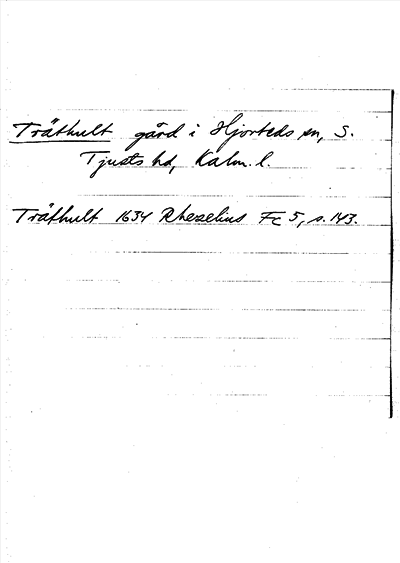 Träthult gård i Hjorteds sn, S.
Tjusts hd, Kalm. l.
Träthult 1634 Rhezelius Fc 5, s. 143.